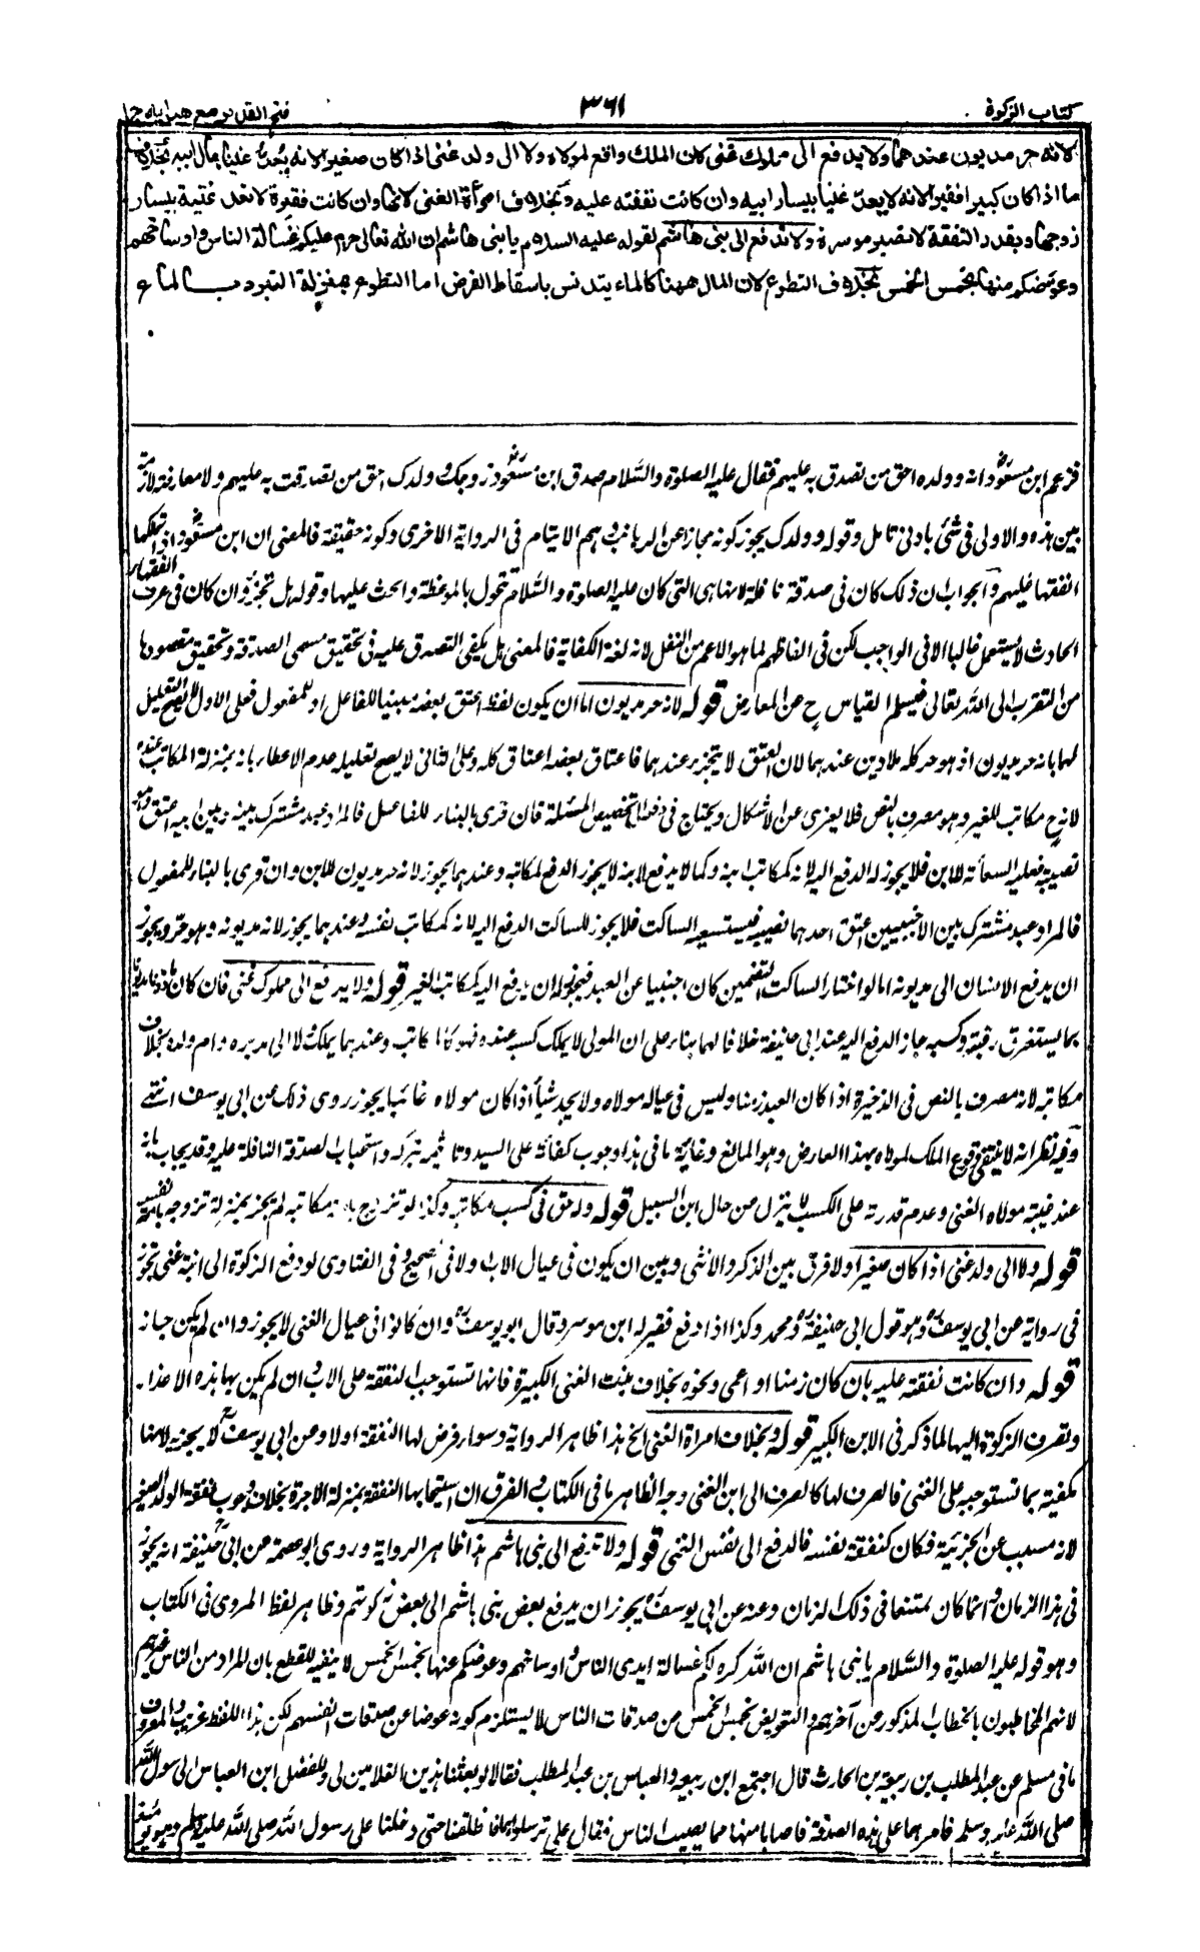 كتاب الزكوة
٣٦١
فتح القدير مع هدايه ج ١
لانه حر مديون عندهما ولا يدفع الى مملوك غنى لان الملك واقع لمولاه ولا الى ولد غنى اذا كان صغيرا لانه يُعدّ غنيا بمال ابيه بخلاف
ما اذا كان كبيرا فقيرا لانه لا يعدّ غنيا بيسار ابيه وان كانت نفقته عليه وبخلاف امرأة الغنى لانها وان كانت فقيرة لا تعد غنية بيسار
زوجها وبقدر النفقة لا تصير موسرة ولا تدفع الى بنى هاشم لقوله عليه السلام يا بنى هاشم ان الله تعالى حرم عليكم غسالة الناس واوساخهم
وعوضكم منها بخمس الخمس بخلاف التطوع لان المال ههنا كالماء يتدنس باسقاط الفرض اما التطوع بمنزلة التبرد بالماء
فزعم ابن مسعود انه وولده احق من تصدق به عليهم فقال عليه الصلوة والسلام صدق ابن مسعود زوجك وولدك احق من تصدقت به عليهم ولا معارضة لازمة
بين هذه والاولى فى شئ بادنى تامل وقوله وولدك يجوز كونه مجازا عن الربائب وهم الايتام فى الرواية الاخرى وكونه حقيقة فالمعنى ان ابن مسعود اذا تملكها
انفقها عليهم والجواب ان ذلك كان فى صدقة نافلة لانها هى التى كان عليه الصلوة والسلام يتخول بالموعظة والحث عليها وقوله هل تجزئ وان كان فى عرف الفقهاء
الحادث لا يستعمل غالبا الا فى الواجب لكن فى الفاظهم لما هو الاعم من النفل لانه لغة الكفاية فالمعنى هل يكفى التصدق عليه فى تحقيق مسمى الصدقة وتحقيق مقصودها
من التقرب الى الله تعالى فيسلم القياس ح عن المعارض قوله لانه حر مديون اما ان يكون لفظ اعتق بعضه مبنيا للفاعل او للمفعول فعلى الاول لا يصح التعليل
لهما بانه حر مديون اذ هو حر كله بلا دين عندهما لان العتق لا يتجزء عندهما فاعتاق بعضه اعتاق كله وعلى الثانى لا يصح تعليله عدم الاعطاء بانه بمنزلة المكاتب عنده
لانه ح مكاتب للغير وهو مصرف بالنص فلا يعرى عن الاشكال ويحتاج فى دفعه الى تخصيص المسئلة فان قرئ بالبناء للفاعل فالمراد عبد مشترك بينه وبين ابنه اعتق هو
نصيبه فعليه السعاية للابن فلا يجوز له الدفع اليه لانه كمكاتب ابنه وكما لا يدفع لابنه لا يجوز الدفع لمكاتبه وعندهما يجوز لانه حر مديون للابن وان قرئ بالبناء للمفعول
فالمراد عبد مشترك بين الاجنبيين اعتق احدهما نصيبه فيستسعيه الساكت فلا يجوز للساكت الدفع اليه لانه كمكاتب نفسه وعندهما يجوز لانه مديونه وهو حر ويجوز
ان يدفع الانسان الى مديونه اما لو اختار الساكت التضمين كان اجنبيا عن العبد فيجوز له ان يدفع اليه كمكاتب الغير قوله ولا يدفع الى مملوك غنى فان كان ماذونا مديونا
بما يستغرق رقبته وكسبه جاز الدفع اليه عند ابى حنيفة خلافا لهما بناء على ان المولى لا يملك كسبه عنده فهو كالمكاتب وعندهما يملك لا الى مدبره وام ولده بخلاف
مكاتبه لانه مصرف بالنص فى الذخيرة اذا كان العبد زمنا وليس فى عيال مولاه ولا يجد شيأ اذ كان مولاه غائبا يجوز روى ذلك عن ابى يوسف انتهى
وفيه نظر انه لا ينتفى وقوع الملك لمولاه بهذا العارض وهو المانع وغاية ما فى هذا وجوب كفايته على السيد وتاثيمه بتركه واستحباب الصدقة النافلة عليه وقد يجاب بانه
عند غيبة مولاه الغنى وعدم قدرته على الكسب لا ينزل عن حال ابن السبيل قوله وله حق فى كسب مكاتبه وكذا لو تزوج بامة مكاتبه لم يجز بمنزلة تزوجه بامة نفسه
قوله ولا الى ولد غنى اذا كان صغيرا ولا فرق بين الذكر والانثى وبين ان يكون فى عيال الاب او لا فى الصحيح وفى الفتاوى لو دفع الزكوة الى ابنة غنى تجوز
فى رواية عن ابى يوسف وهو قول ابى حنيفة ومحمد وكذا اذا دفع فقير له ابن موسر وقال ابو يوسف وان كانوا فى عيال الغنى لا يجوز وان لم يكن جاز
قوله وان كانت نفقته عليه بان كان زمنا او اعمى ونحوه بخلاف بنت الغنى الكبيرة فانها تستوجب النفقة على الاب وان لم يكن بها هذه الاعذار
وتصرف الزكوة اليها لما ذكر فى الابن الكبير قوله وبخلاف امراة الغنى الخ هذا ظاهر الرواية وسواء فرض لها النفقة او لا وعن ابى يوسف لا يجزيه لانها
مكفية بما تستوجبه على الغنى فالصرف لها كالصرف الى ابن الغنى وجه الظاهر ما فى الكتاب والفرق ان استيجابها النفقة بمنزلة الاجرة بخلاف وجوب نفقة الولد الصغير
لانه مسبب عن الجزئية فكان كنفقة نفسه فالدفع الى نفس الغنى قوله ولا تدفع الى بنى هاشم هذا ظاهر الرواية وروى ابو عصمة عن ابى حنيفة انه يجوز
فى هذا الزمان وانما كان ممتنعا فى ذلك الزمان وعنه عن ابى يوسف يجوز ان يدفع بعض بنى هاشم الى بعض زكوتهم وظاهر لفظ المروى فى الكتاب
وهو قوله عليه الصلوة والسلام يا بنى هاشم ان الله كره لكم غسالة ايدى الناس واوساخهم وعوضكم عنها بخمس الخمس لا ينفيه للقطع بان المراد من الناس غيرهم
لانهم المخاطبون بالخطاب المذكور عن آخرهم والتعويض بخمس الخمس من صدقات الناس لا يستلزم كونه عوضا عن صدقات انفسهم لكن هذا اللفظ غريب والمعروف
ما فى مسلم عن عبد المطلب بن ربيعة بن الحارث قال اجتمع ابن ربيعه والعباس بن عبد المطلب فقالا لو بعثنا هذين الغلامين لى وللفضل ابن العباس الى رسول الله
صلى الله عليه وسلم فامرهما على هذه الصدقة فاصابا منها مما يصيب الناس فقال على لا ترسلوهما فانطلقنا حتى دخلنا على رسول الله صلى الله عليه وسلم وهو يومئذ